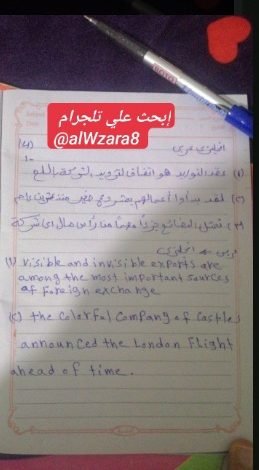 إبحث علي تلجرام
@alWzara8
انجليزي عربي
(1) عقد التوريد هو اتفاق لتزويد
(2) لقد بدأوا أعمالهم بمشروع صغير منذ عشرين عام
(3) تمثل البضائع جزءاً مهماً من رأس مال أي شركة
عربي انجليزي
(1) visible and invisible exports are
among the most important sources
of foreign exchange
(2) the colorful company of castles
announced the London flight
ahead of time.